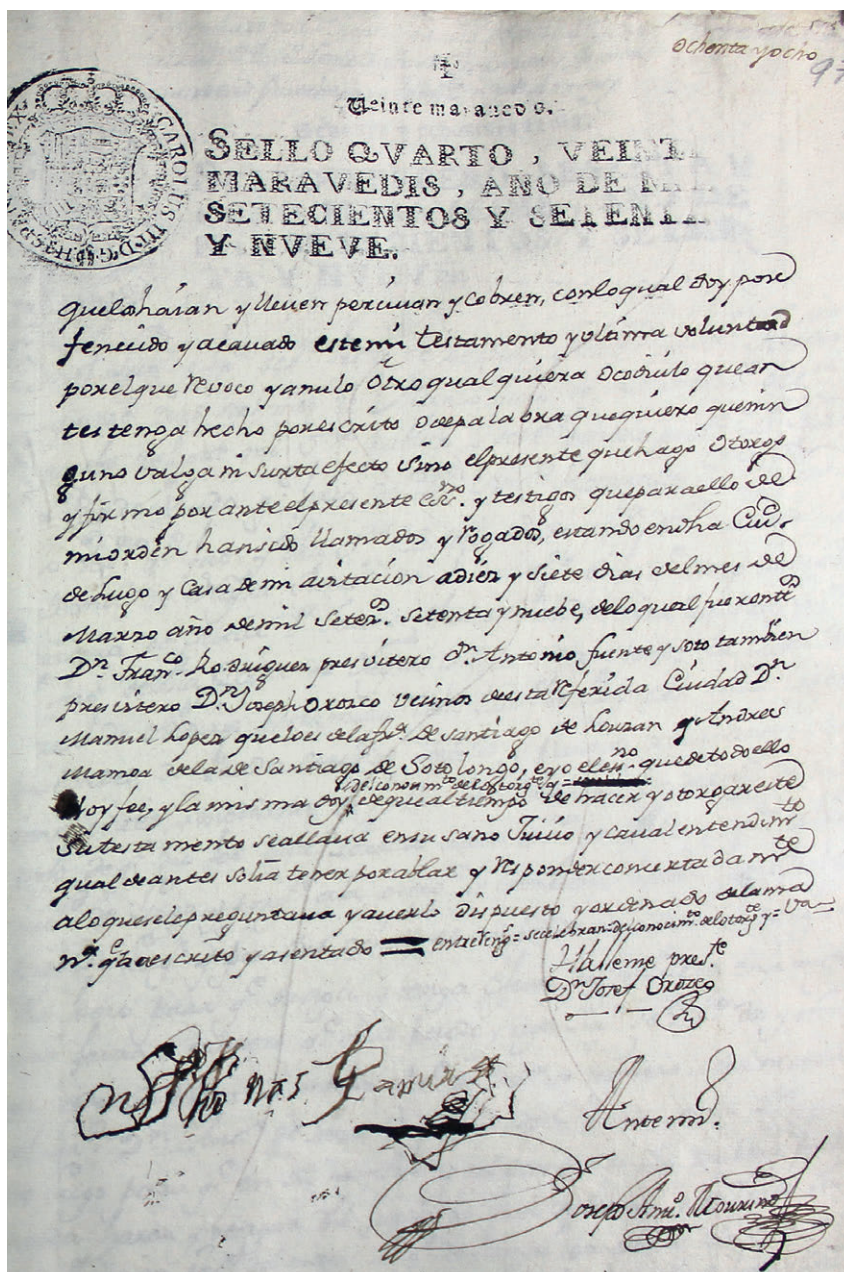 ochenta y ocho
97
Veinte maravedis.
SELLO QVARTO, VEINTE
MARAVEDIS, AÑO DE MIL
SETECIENTOS Y SETENTA
Y NVEVE.
CAROLUS III D. G. HISPAN
que lo haian y lleven percivan y cobren, con lo qual doy por
fenecido y acavado este mi testamento y ultima voluntad
por el que revoco y anulo otro qualquiera o codicilo que an
tes tenga hecho por escrito o de palabra que quiero que nin
guno valga ni surta efecto sino el presente que hago otorgo
y firmo por ante el presente essno. y testigos que para ello de
mi orden han sido llamados y rogados, estando en dha Ciud.
de Lugo y Casa de mi avitacion a diez y siete dias del mes de
Marzo año de mil setezs. setenta y nuebe, de lo qual fueron tts
Dn. Franco. Rodriguez presvitero Dn. Antonio fuente y soto tambien
presvitero Dn. Joseph Orozco vecinos de esta referida Ciudad Dn.
Manuel Lopez que lo es de la fra. de Santiago de Louzan y Andres
Mamoa de la de Santiago de Sotolongo, e yo el essno. que de todo ello
del conocimto. del otorgte. y =
doy fee, y la misma doy de que al tiempo de hacer y otorgar este
su testamento se allava en su sano Juicio y caval entendimto
qual de antes solia tener por ablar y responder concertadamte
a lo que se le preguntava y averlo dispuesto y ordenado de la ma
nra. qe. ba escrito y asentado = entre rengs = se celebran = del conocimto. del otorgte. y = Va =
Halleme preste.
Dn Josef Orozco
Antemi.
Joseph Anto. Mourino